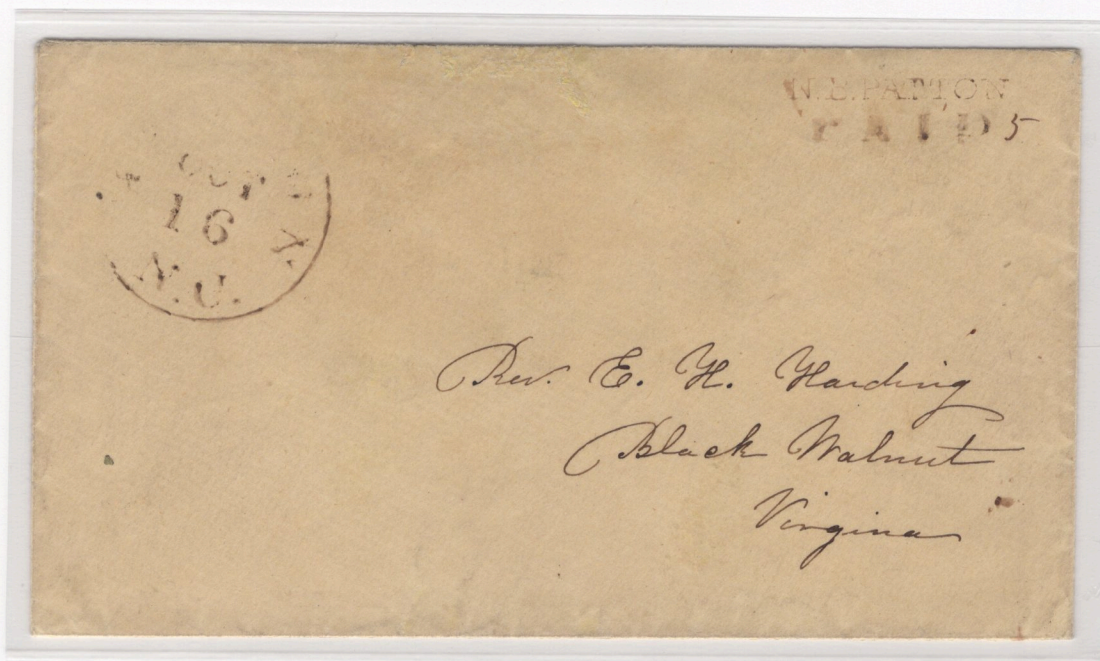 N. B. PATTON
PAID 5
OCT
16
N.C.
Rev. E. H. Harding
Black Walnut
Virgina